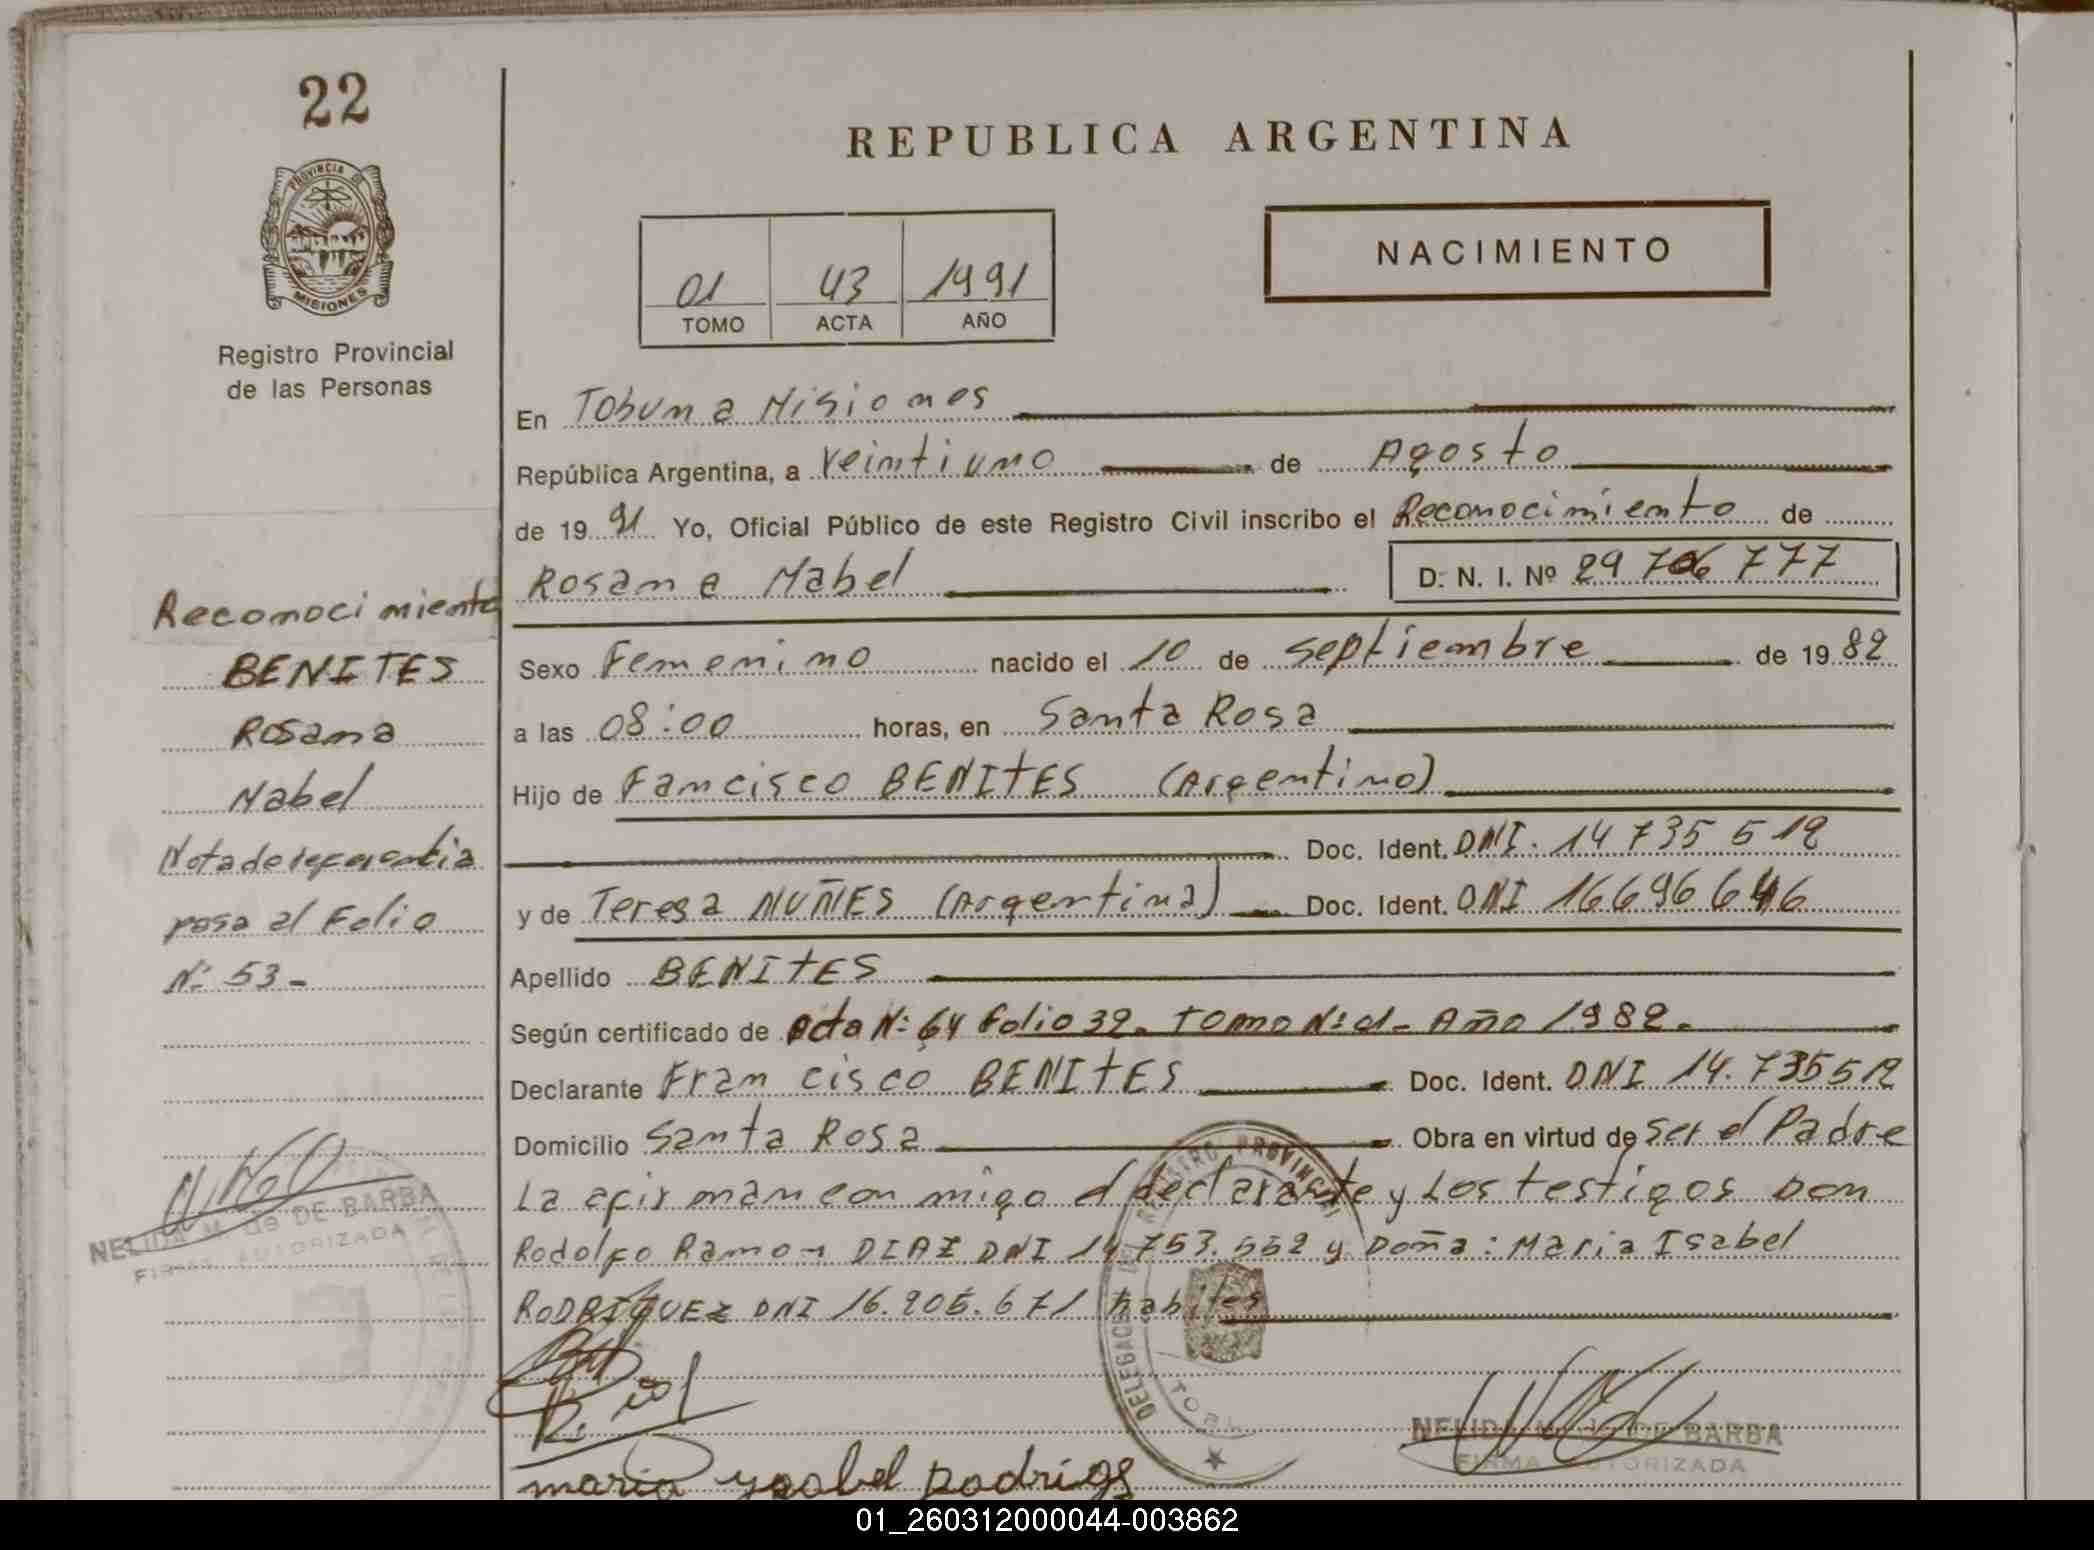 22
PROVINCIA DE
MISIONES
Registro Provincial
de las Personas
REPUBLICA ARGENTINA
NACIMIENTO
01 43 1991
TOMO ACTA AÑO
En Tobuna Misiones
República Argentina, a Veintiuno de Agosto
de 19 91 Yo, Oficial Público de este Registro Civil inscribo el Reconocimiento de
Rosana Mabel D. N. I. Nº 29 706 777
Sexo Femenino nacido el 10 de Septiembre de 19 82
a las 08:00 horas, en Santa Rosa
Hijo de Fancisco BENITES (Argentino)
Doc. Ident. DNI. 14 735 512
y de Teresa NUÑES (Argentina) Doc. Ident. DNI 16696646
Apellido BENITES
Según certificado de acta Nº 64 folio 32. Tomo Nº 1- Año 1982.
Declarante Francisco BENITES Doc. Ident. DNI 14.735512
Domicilio Santa Rosa Obra en virtud de ser el Padre
La afirman con migo el declarante y Los testigos Don
Rodolfo Ramon DIAZ DNI 14 753.552 y Doña: Maria Isabel
RODRIGUEZ DNI 16.205.671 habites
Reconocimiento
BENITES
Rosana
Mabel
Nota de referencia
pasa al Folio
Nº 53-
NELIDA M. de DE BARBA
FIRMA AUTORIZADA
REGISTRO PROVINCIAL
DELEGACION DEL
TOBU
NELIDA M. de DE BARBA
FIRMA AUTORIZADA
maria ysabel Rodrigs
01_260312000044-003862